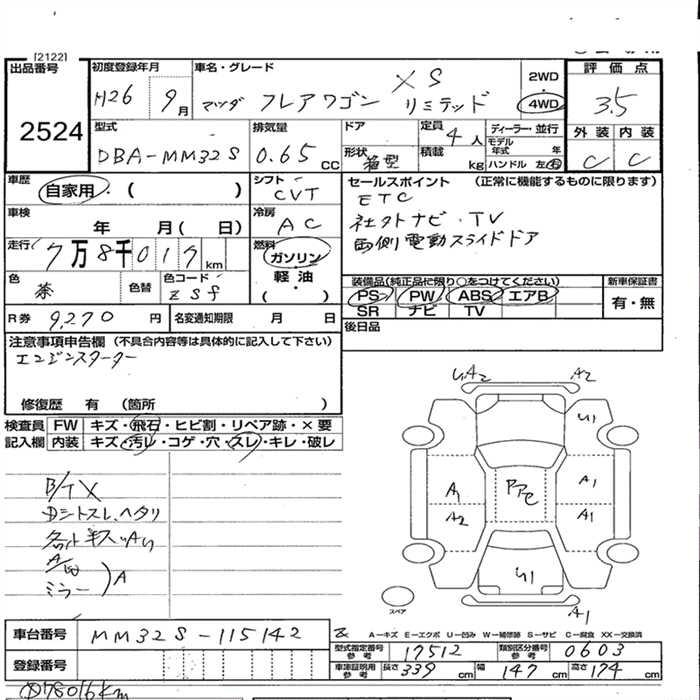 [2122]
出品番号 初度登録年月 車名・グレード 2WD 評価点
2524 H26 9月 マツダ フレアワゴン XS リミテッド ・ 4WD 3.5
型式 排気量 ドア 定員 4人 ディーラー・並行 外装 内装
DBA-MM32S 0.65 CC 形状 箱型 積載 kg モデル年式 年 ハンドル 左・右 C C
車歴 自家用・( ) シフト CVT セールスポイント (正常に機能するものに限ります)
ETC
車検 年 月( 日) 冷房 AC 社外ナビ・TV
走行 7万8千017km 燃料 ガソリン 両側電動スライドドア
軽・油
・( )
色 茶 色替 色コード ZSF 装備品(純正品に限り○をつけてください) 新車保証書
PS PW ABS エアB 有・無
SR ナビ TV
R券 9,270円 名変通知期限 月 日 後日品
注意事項申告欄 (不具合内容等は具体的に記入して下さい)
エンジンスターター
修復歴 有 (箇所 )
検査員 FW キズ・飛石・ヒビ割・リペア跡・×要
記入欄 内装 キズ・汚レ・コゲ・穴・スレ・キレ・破レ
B/TX
Dシートスレ、ヘタリ
ミラー A
U1A2 A2
U1
A1 PAC A1
A2 A1
U1
スペア A1
車台番号 MM32S-115142
A-キズ E-エクボ U-凹み W-補修跡 S-サビ C-腐食 XX-交換済
型式指定番号 参考 17512 類別区分番号 参考 0603
登録番号 車庫証明用 参考 長さ 339 cm 幅 147 cm 高さ 174 cm
78016km